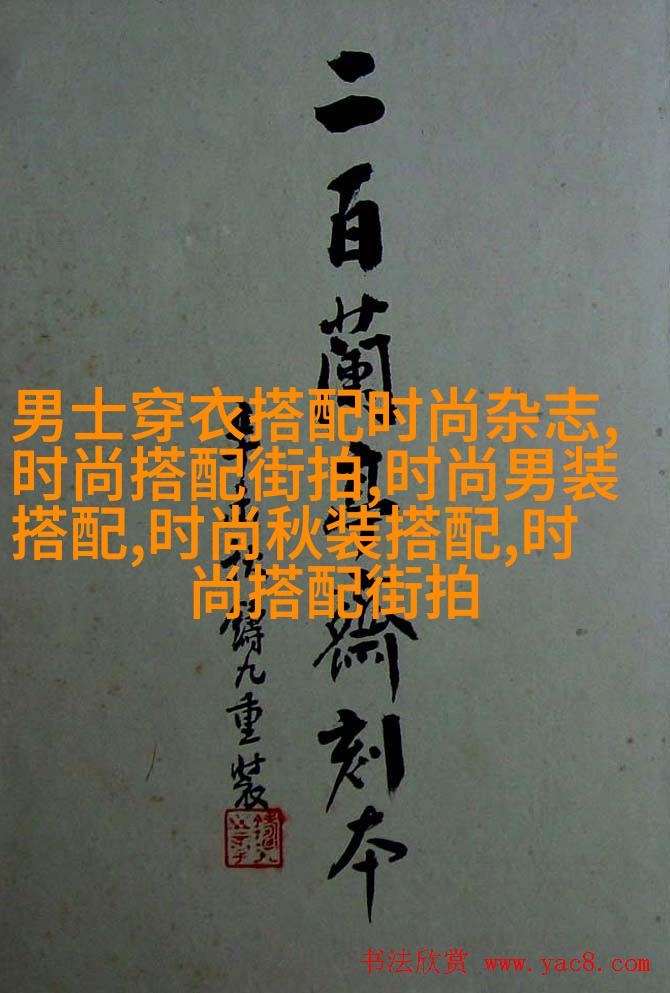 二百蘭亭齋刻本
鑄九重裝
男士穿衣搭配时尚杂志,
时尚搭配街拍,时尚男装
搭配,时尚秋装搭配,时
尚搭配街拍
书法欣赏 www.yac8.com